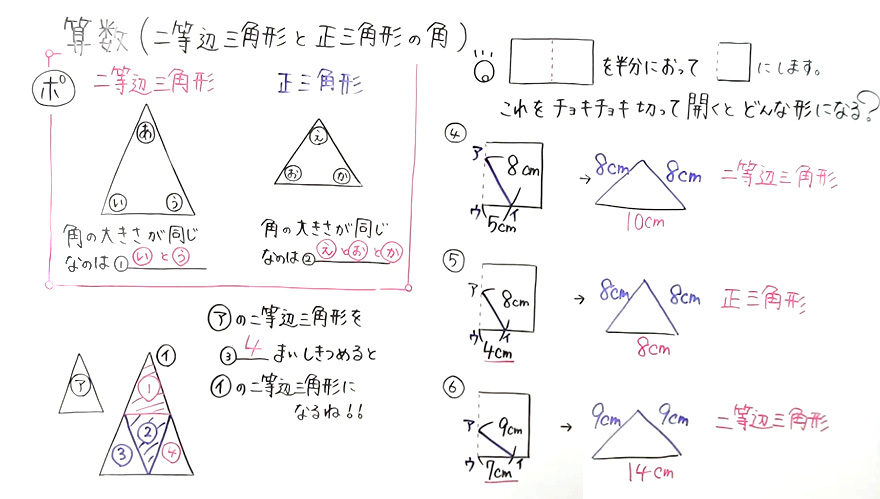 算数(二等辺三角形と正三角形の角)
ポ
二等辺三角形
正三角形
あ
い
う
え
お
か
角の大きさが同じ
なのは①いとう
角の大きさが同じ
なのは②えとおとか
アの二等辺三角形を
③4まいしきつめると
イの二等辺三角形に
なるね!!
ア
イ
①
②
③
④
を半分におって
にします。
これをチョキチョキ切って開くとどんな形になる?
④
ア
8cm
ウ
イ
5cm
→
8cm
8cm
10cm
二等辺三角形
⑤
ア
8cm
ウ
イ
4cm
→
8cm
8cm
8cm
正三角形
⑥
ア
9cm
ウ
イ
7cm
→
9cm
9cm
14cm
二等辺三角形